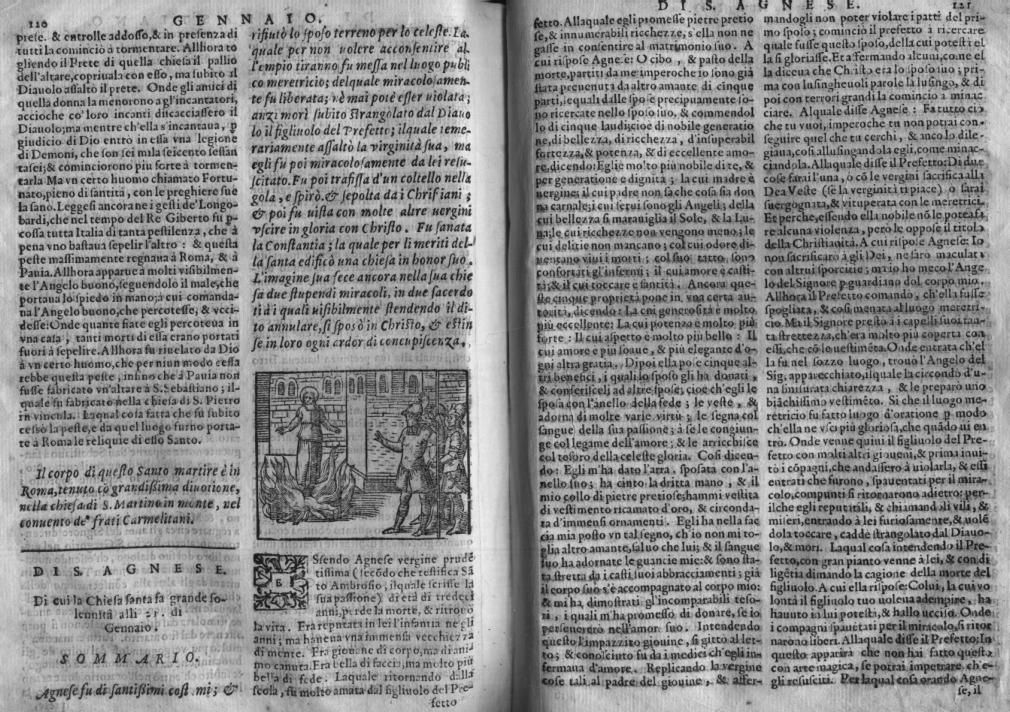 120
GENNAIO.
prese. & entrolle addosso, & in presenza di
tutti la cominciò à tormentare. Allhora to
gliendo il Prete di quella chiesa il pallio
dell'altare, copriuala con esso, ma subito il
Diauolo assaltò il prete. Onde gli amici di
quella donna la menorono a gl'incantatori,
accioche co'loro incanti discacciassero il
Diauolo; ma mentre ch'ella s'incantaua, p
giudicio di Dio entrò in essa vna legione
di Demoni, che son sei mila sescento sessan
tasei; & cominciorono piu forte à tormen-
tarla. Ma vn certo huomo chiamato Fortu-
nato, pieno di santità, con le preghiere sue
la sanò. Leggesi ancora ne i gesti de'Longo-
bardi, che nel tempo del Re Giberto fu p
cossa tutta Italia di tanta pestilenza, che à
pena vno bastaua sepelir l'altro: & questa
peste massimamente regnaua à Roma, & à
Pauia. Allhora apparue à molti visibilmen-
te l'Angelo buono, seguendolo il male, che
portaua lo spiedo in mano; à cui comanda-
ua l'Angelo buono, che percotesse, & vcci-
desse: Onde quante fiate egli percoteua in
vna casa, tanti morti di essa erano portati
fuori à sepelire. Allhora fu riuelato da Dio
à vn certo huomo, che per niun modo cessa
rebbe questa peste, infino che à Pauia non
fusse fabricato vn'altare à S. Sebastiano; il-
quale fu fabricato nella chiesa di S. Pietro
in vincula. Laqual cosa fatta che fu subito
cessò la peste, e da quel luogo furno porta-
te à Roma le reliquie di esso Santo.
Il corpo di questo Santo martire è in
Roma, tenuto cō grandissima diuotione,
nella chiesa di S. Martino in monte, nel
conuento de' frati Carmelitani.
DI S. AGNESE.
Di cui la Chiesa santa fa grande so-
lennità alli 21. di
Gennaio.
SOMMARIO.
Agnese fu di santissimi costumi; &
rifiutò lo sposo terreno per lo celeste. La
quale per non uolere acconsentire al
l'empio tiranno fu messa nel luogo publi
co meretricio; delquale miracolosamen-
te fu liberata; nè mai potè esser uiolata;
anzi morì subito strangolato dal Diauo
lo il figliuolo del Prefetto; ilquale teme-
rariamente assaltò la virginità sua, ma
egli fu poi miracolosamente da lei resu-
scitato. Fu poi trafissa d'un coltello nella
gola, e spirò. & sepolta da i Christiani;
& poi fu uista con molte altre uergini
vscire in gloria con Christo. Fu sanata
la Constantia; la quale per li meriti del-
la santa edificò una chiesa in honor suo.
L'imagine sua fece ancora nella sua chie
sa due stupendi miracoli, in due sacerdo
ti à i quali uisibilmente stendendo il di-
to annulare, si sposò in Christo, & estin
se in loro ogni ardor di concupiscenza.
ESsendo Agnese vergine prudē
tissima (secōdo che testifica Sā
to Ambrosio; ilquale scrisse la
sua passione) di età di tredeci
anni, perde la morte, & ritrouò
la vita. Era reputata in lei l'infantia ne gli
anni; ma haueua vna immensa vecchiezza
di mente. Era giouane di corpo, ma di ani-
mo canuta. Era bella di faccia, ma molto più
bella di fede. Laquale ritornando dalla
scola, fu molto amata dal figliuolo del Pre-
fetto
DI S. AGNESE.
121
fetto. Allaquale egli promesse pietre pretio
se, & innumerabili ricchezze, s'ella non ne
gasse in consentire al matrimonio suo. A
cui rispose Agnese: O cibo, & pasto della
morte, parti da me imperoche io sono già
stata preuenuta da altro amante di cinque
parti, lequali dalle spose precipuamente so-
no ricercate nello sposo suo, & commendol
lo di cinque laudi; cioè di nobile generatio
ne, di bellezza, di ricchezza, d'insuperabil
fortezza, & potenza, & di eccellente amo-
re, dicendo: Egli è molto più nobile di te, &
per generatione e dignità; la cui madre è
vergine, il cui padre non sa che cosa sia don
na carnale; i cui serui sono gli Angeli; della
cui bellezza si marauiglia il Sole, & la Lu-
na; le cui ricchezze non vengono meno; le
cui delitie non mancano; col cui odore di-
uentano viui i morti; col suo tatto sono
confortati gl'infermi; il cui amore è casti-
tà; & il cui toccare è santità. Ancora que-
ste cinque proprietà pone in vna certa au-
torità, dicendo: La cui generosità è molto
più eccellente: La cui potenza è molto più
forte: Il cui aspetto è molto più bello: Il
cui amore è più soaue, & più elegante d'o-
gni altra gratia. Dipoi ella pose cinque al-
tri benefici, i quali lo sposo gli ha donati,
& conferisceli ad altre spose; cioè ch'egli le
sposa con l'anello della fede; le veste, &
adorna di molte varie virtù; le segna col
sangue della sua passione; à se le congiun-
ge col legame dell'amore; & le arricchisce
col tesoro della celeste gloria. Così dicen-
do: Egli m'ha dato l'arra, sposata con l'a-
nello suo; ha cinto la dritta mano, & il
mio collo di pietre pretiose; hammi vestita
di vestimento ricamato d'oro, & circonda-
ta d'immensi ornamenti. Egli ha nella fac
cia mia posto vn tal segno, ch'io non mi to-
glia altro amante, saluo che lui; & il sangue
suo ha adornate le guancie mie: & sono sta-
ta stretta da i casti suoi abbracciamenti; già
il corpo suo s'è accompagnato al corpo mio:
& mi ha dimostrati gl'incomparabili teso-
ri, i quali m'ha promesso di donare, se io
perseuererò nell'amor suo. Intendendo
questo l'impazzito giouine, si gittò al let-
to; & conosciuto fu da i medici ch'egli in-
fermaua d'amore. Replicando la vergine
cose tali al padre del giouine, & affer-
mandogli non poter violare i patti del pri-
mo sposo; cominciò il prefetto à ricercare
quale fusse questo sposo, della cui potestà el
la si gloriasse. Et affermando alcuni, come el
la diceua che Christo era lo sposo suo; pri-
ma con lusingheuoli parole la lusingò, & di
poi con terrori grandi la cominciò à minac
ciare. Alquale disse Agnese: Fa tutto ciò
che tu vuoi, imperoche tu non potrai con-
seguire quel che tu cerchi, & anco lo dile-
giaua, così allusingandola egli, come minac-
ciandola. Allaquale disse il Prefetto: Di due
cose farai l'una, ò cō le vergini sacrifica alla
Dea Veste (se la verginità ti piace) o sarai
suergognata, & vituperata con le meretrici.
Et perche, essendo ella nobile nō le poteua fa
re alcuna violenza, però le oppose il titolo
della Christianità. A cui rispose Agnese: Io
non sacrificarò à gli Dei, ne sarò maculata
con altrui sporcitie; mà io ho meco l'Ange
lo del Signore p guardiano del corpo mio.
Allhora il Prefetto comandò, ch'ella fusse
spogliata, & così menata al luogo meretri-
cio. Ma il Signore prestò à i capelli suoi tan-
ta strettezza, ch'era molto più coperta con
essi, che cō lo uestimēto. Onde entrata ch'el
la fu nel sozzo luogo, trouò l'Angelo del
Sig. apparecchiato, ilquale la circondò d'u-
na smisurata chiarezza, & le preparò uno
biāchissimo vestimēto. Sì che il luogo me-
retricio fu fatto luogo d'oratione p modo
ch'ella ne vscì più gloriosa, che quādo ui en
trò. Onde venne quiui il figliuolo del Pre-
fetto con molti altri giouani, & prima inui-
tò i cōpagni, che andassero à uiolarla, & essi
entrati che furono, spauentati per il mira-
colo, compunti si ritornarono adietro: per-
ilche egli reputatili, & chiamandoli vili, &
miseri, entrando à lei furiosamente, & uolē
dola toccare, cadde strangolato dal Diauo-
lo, & morì. Laqual cosa intendendo il Pre-
fetto, con gran pianto venne à lei, & con di
ligētia dimandò la cagione della morte del
figliuolo. A cui ella rispose: Colui, la cui vo
lontà il figliuolo tuo voleua adempire, ha
hauuto in lui potestà, & hallo ucciso. Onde
i compagni spauetati per il miracolo, si ritor
narono liberi. Allaquale disse il Prefetto: In
questo apparirà che non hai fatto questa
con arte magica, se potrai impetrare ch'e-
gli resusciti. Per laqual cosa orando Agne-
se, il